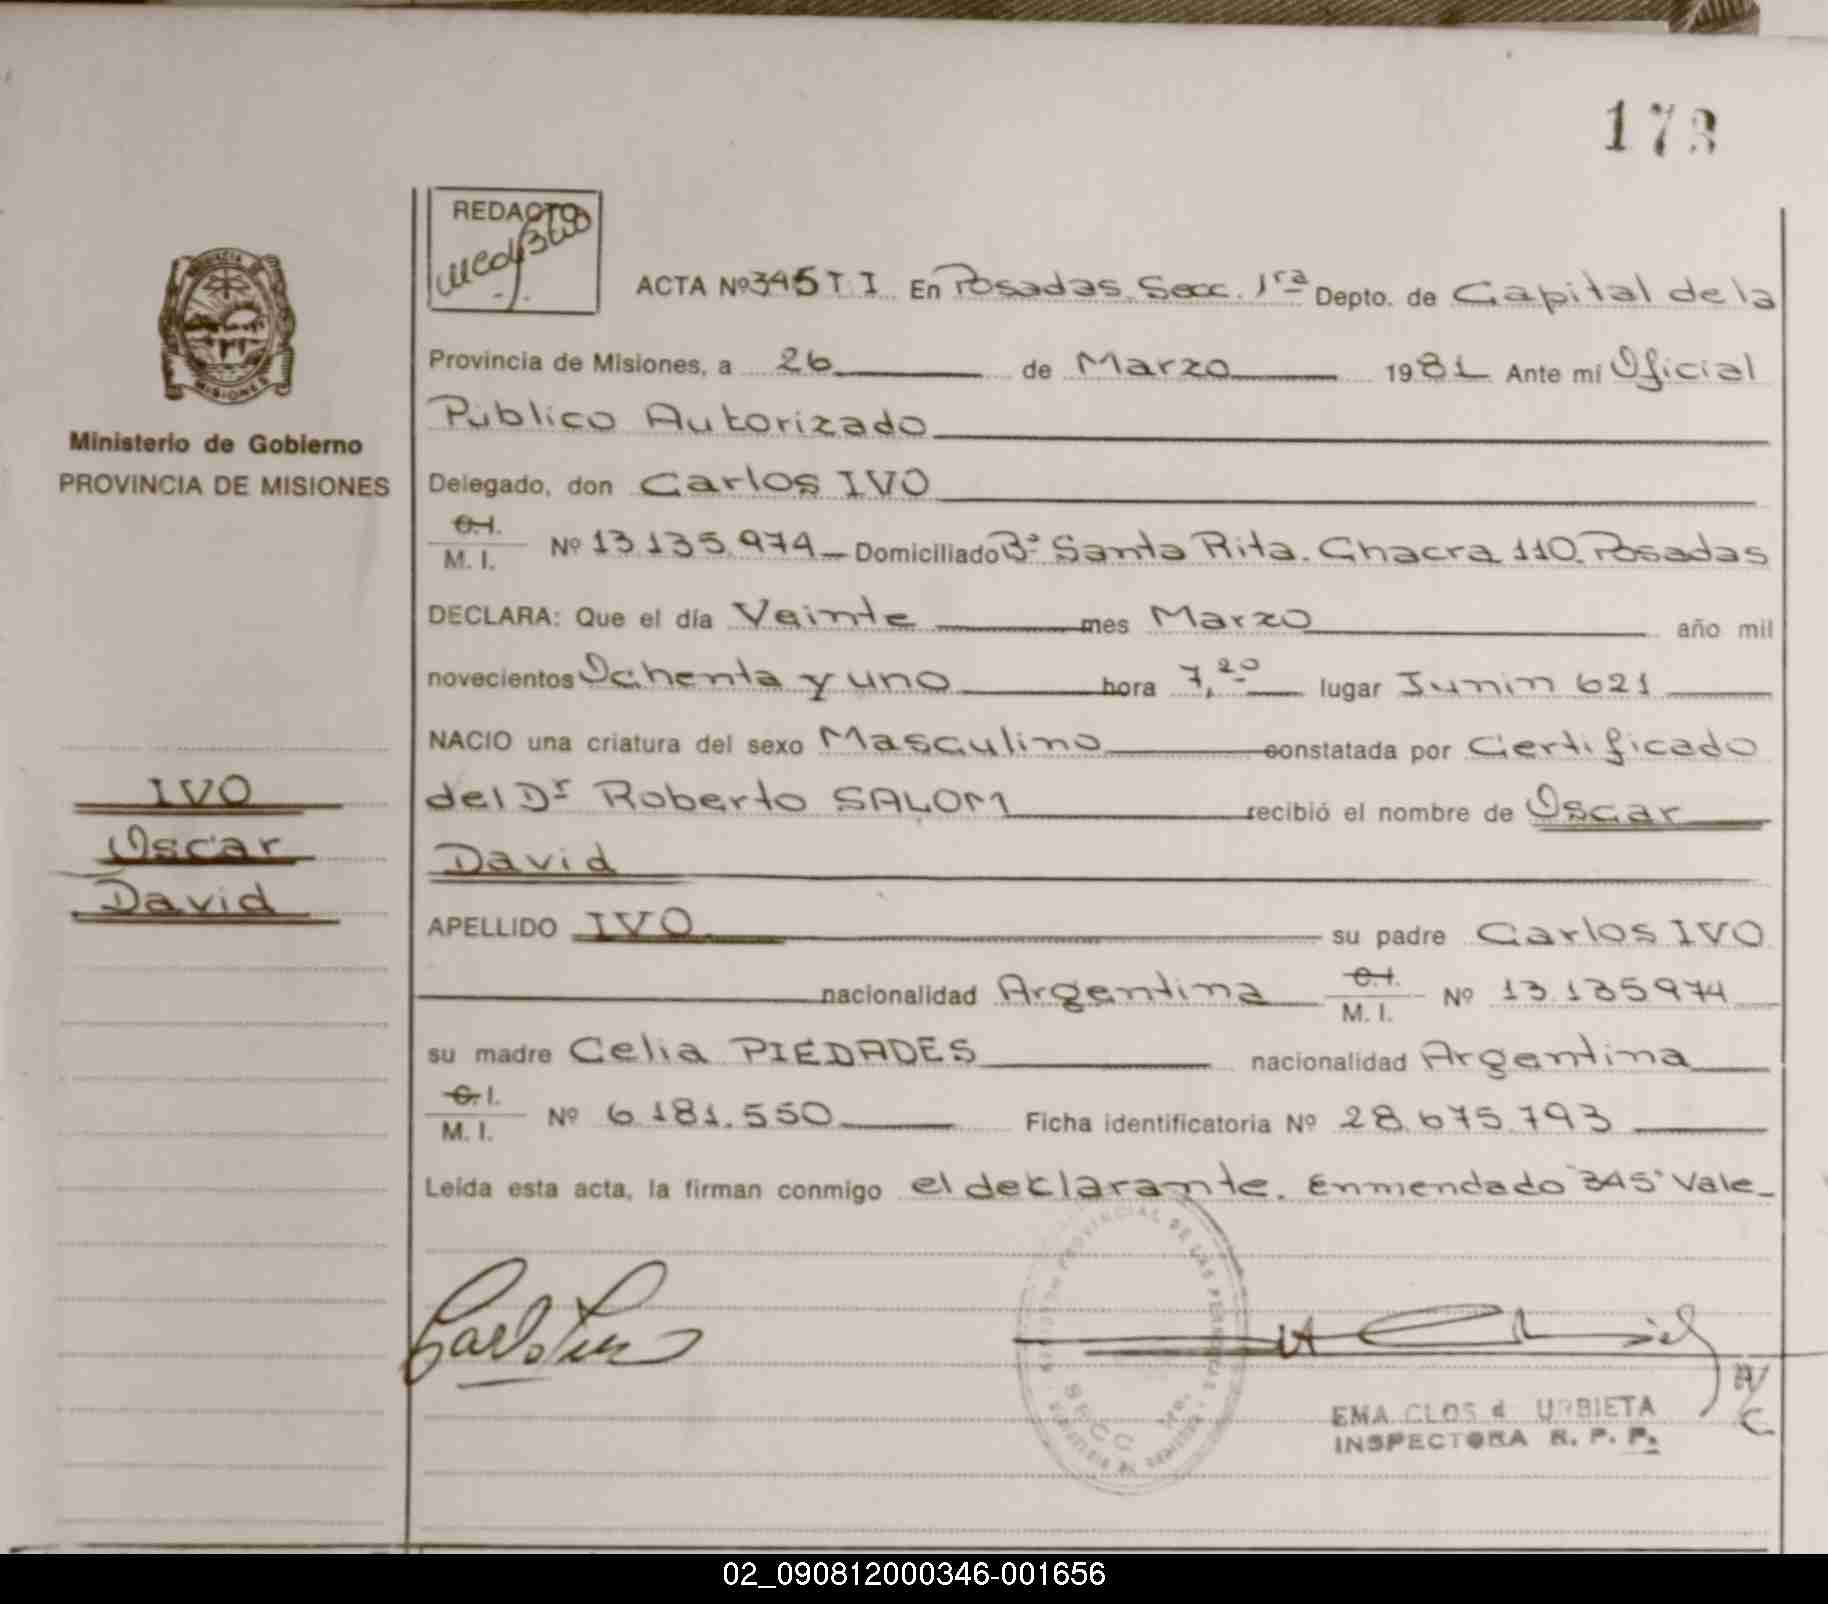 173
REDACTO
ACTA Nº 345 T I En Posadas. Secc. 1ra Depto. de Capital de la
Provincia de Misiones, a 26 de Marzo 1981 Ante mí Oficial
Público Autorizado
Delegado, don Carlos IVO
C.I.
M. I. Nº 13.135.974 Domiciliado Bº Santa Rita. Chacra 110. Posadas
DECLARA: Que el día Veinte mes Marzo año mil
novecientos Ochenta y uno hora 7,20 lugar Junin 621
NACIO una criatura del sexo Masculino constatada por Certificado
del Dr Roberto SALOM recibió el nombre de Oscar
David
APELLIDO IVO su padre Carlos IVO
nacionalidad Argentina C.I.
M. I. Nº 13.135974
su madre Celia PIEDADES nacionalidad Argentina
C. I.
M. I. Nº 6.181.550 Ficha identificatoria Nº 28.675.793
Leída esta acta, la firman conmigo el declarante. Enmendado "345" Vale_
PROVINCIA DE
MISIONES
Ministerio de Gobierno
PROVINCIA DE MISIONES
IVO
Oscar
David
PROVINCIAL DE LAS PERSONAS
SECC 1ra.
EMA CLOS d URBIETA
INSPECTORA R. P. P.
A/C
02_090812000346-001656